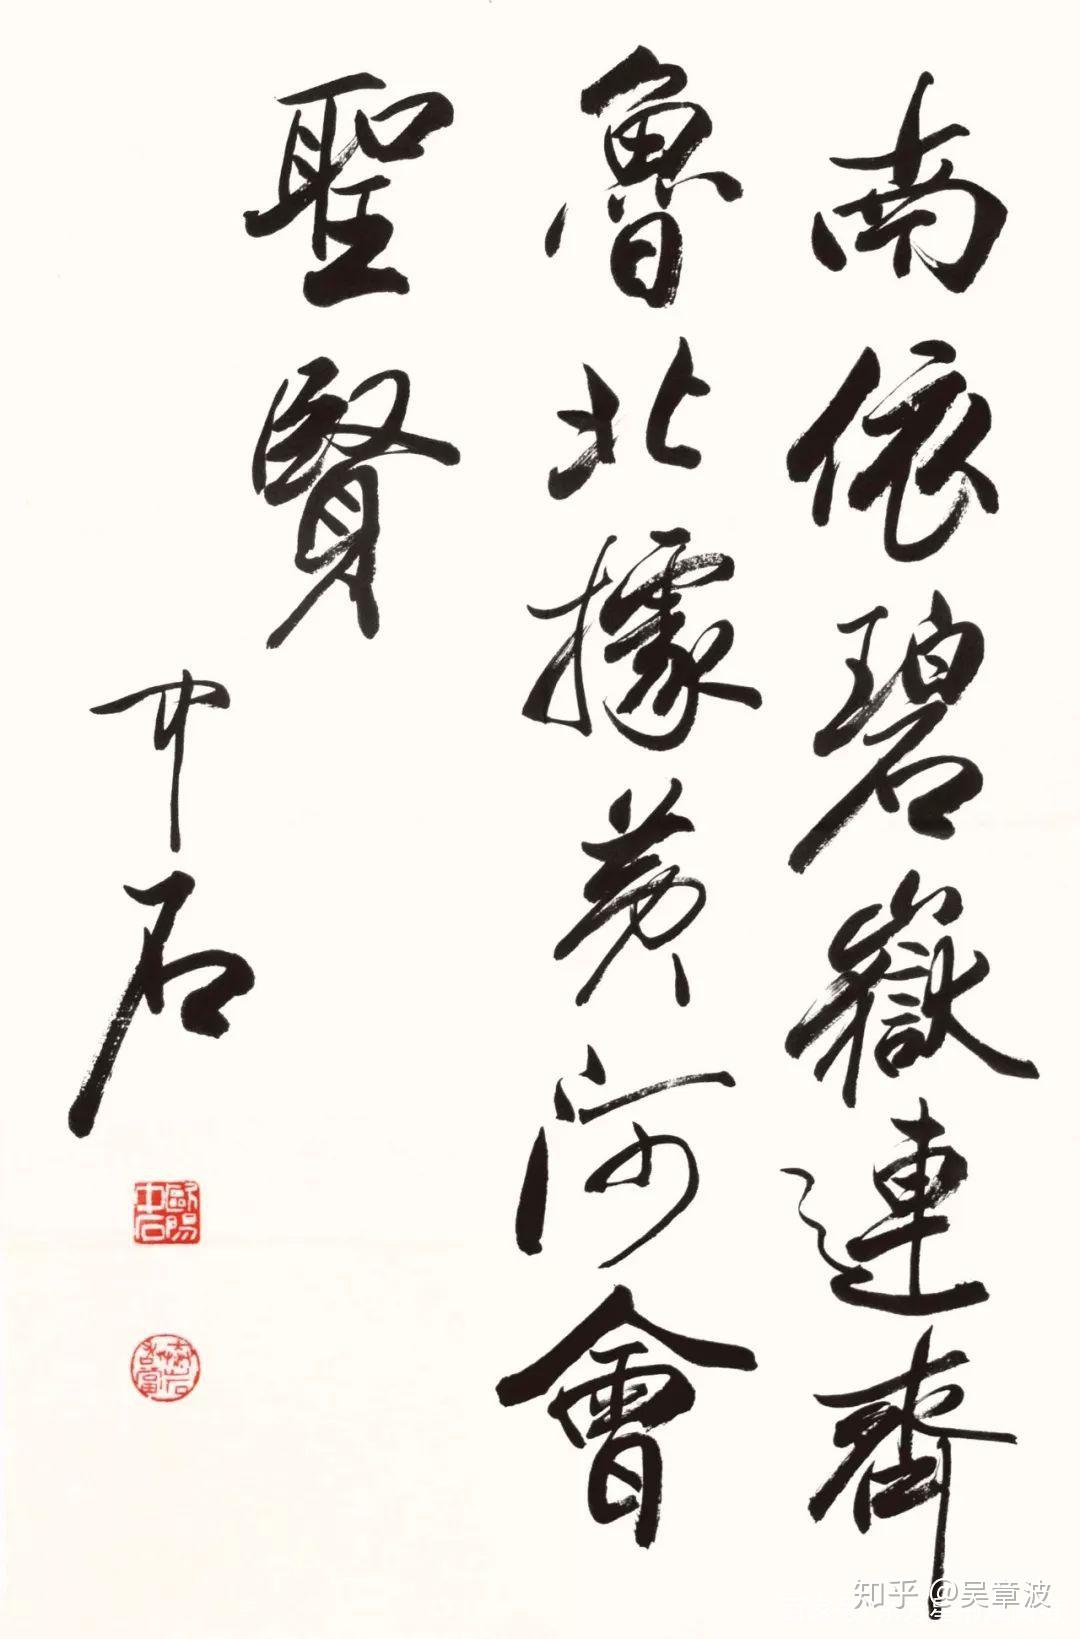 南依碧嶽連齊
魯北據黄河會
聖賢
中石
歐陽中石
知乎 @吴章波